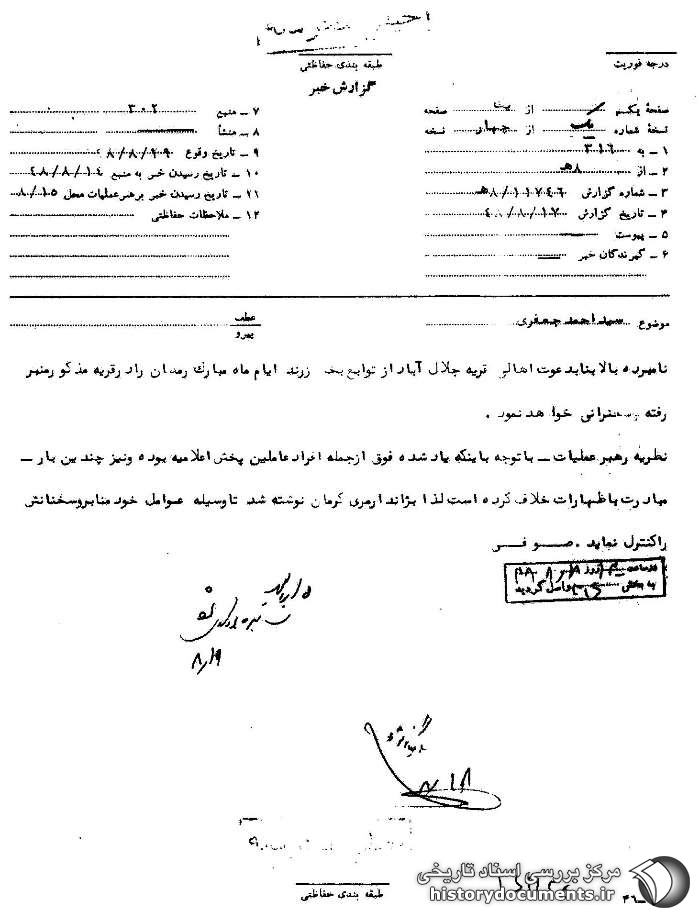 طبقه بندی حفاظتی
درجه فوریت
گزارش خبر
صفحهٔ یکم از صفحه
نسخهٔ شماره یک از چهار نسخه
۱ ـ به ۳۱۶
۲ ـ از ۸هـ
۳ ـ شماره گزارش ۱۱۷۴۶/۸هـ
۴ ـ تاریخ گزارش ۴۸/۸/۱۷
۵ ـ پیوست
۶ ـ گیرندگان خبر
۷ ـ منبع ۳۰۲
۸ ـ منشأ
۹ ـ تاریخ وقوع
۱۰ ـ تاریخ رسیدن خبر به منبع ۴۸/۸/۱۴
۱۱ ـ تاریخ رسیدن خبر برهبر عملیات محل ۸/۱۵
۱۲ ـ ملاحظات حفاظتی
موضوع سید احمد جعفری
عطف
پیرو
نامبرده بالا بنا بدعوت اهالی قریه جلال آباد از توابع بخش زرند ایام ماه مبارك رمضان را در قریه مذکور منبر
رفته وسخنرانی خواهد نمود .
نظریه رهبر عملیات ـ با توجه باینکه یاد شده فوق از جمله افراد عاملین پخش اعلامیه بوده و نیز چندین بار ـ
مبادرت باظهارات خلاف کرده است لذا بژاندارمری کرمان نوشته شد تا وسیله عوامل خود منابر وسخنانش
را کنترل نماید . صــوفــر
روز
به بخش واصل گردید
۸/۱۹
۸/۱۸
طبقه بندی حفاظتی
مرکز بررسی اسناد تاریخی
historydocuments.ir